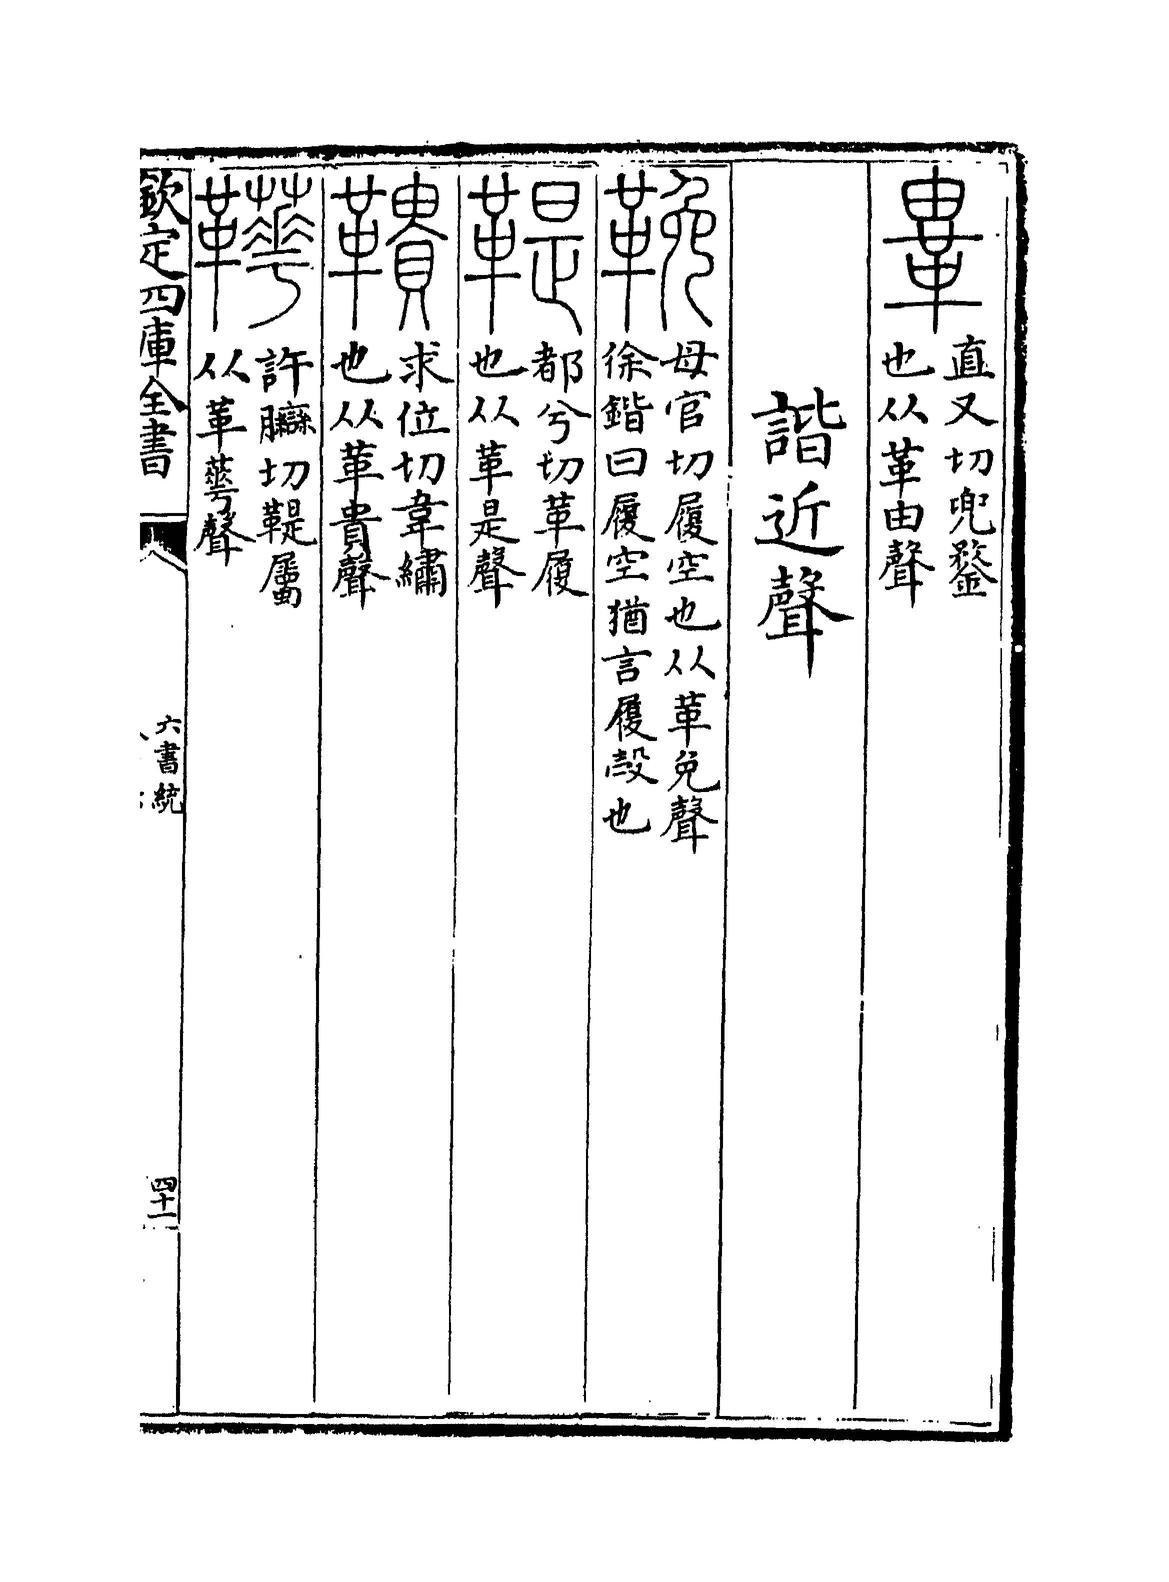 𩊄直又切兜鍪
也从革由聲
諧近聲
鞔母官切履空也从革免聲
徐鍇曰履空猶言履殼也
鞮都兮切革履
也从革是聲
鞼求位切韋繡
也从革貴聲
許切鞮屬
从革聲
欽定四庫全書
六書統
四十一